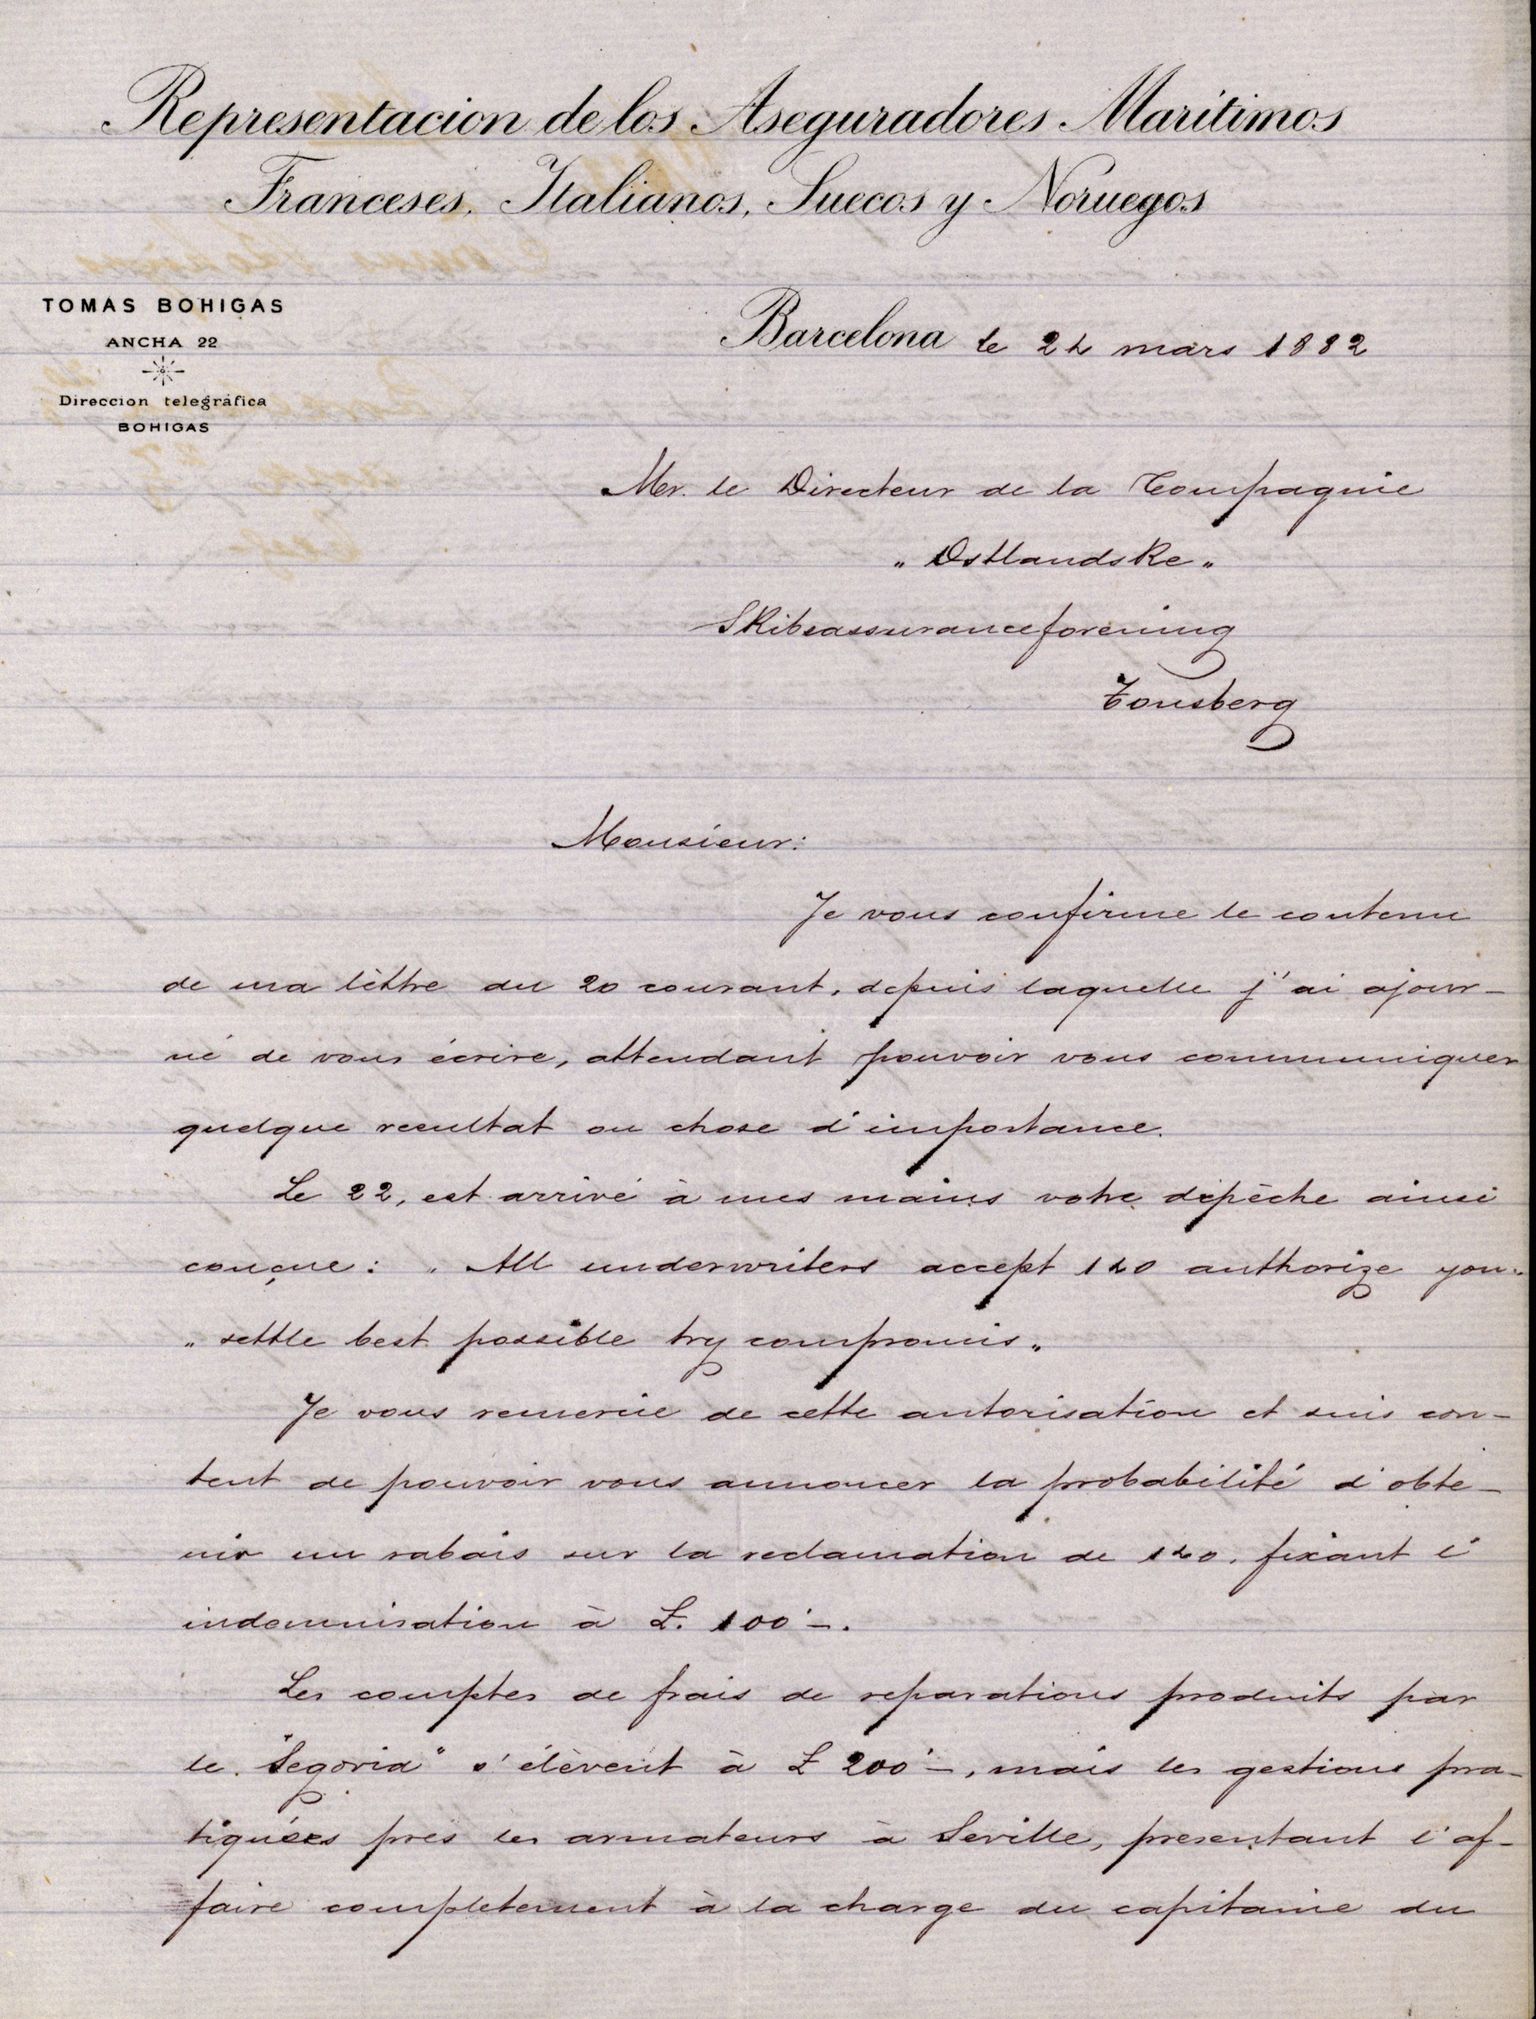 Representacion de los Aseguradores Maritimos
Franceses, Italianos, Suecos y Noruegos
TOMAS BOHIGAS
ANCHA 22
Direccion telegráfica
BOHIGAS
Barcelona le 24 mars 1882
Mr. le Directeur de la Compagnie
„ Ostlandske „
Skibsassuranceforening
Tonsberg
Monsieur:
Je vous confirme le contenu
de ma lèttre du 20 courant, depuis laquelle j'ai ajour-
né de vous écrire, attendant pouvoir vous communiquer
quelque resultat ou chose d'importance.
Le 22, est arrivé à mes mains votre dépèche ainsi
conçue: „ All underwriters accept 140 authorize you„
„ settle best possible try compromis „
Je vous remercie de cette autorisation et suis con-
tent de pouvoir vous annoncer la probabilité d'obte-
nir un rabais sur la reclamation de 140, fixant l'
indemnisation à £. 100'-.
Les comptes de frais de reparations produits par
le "Segovia" s'élèvent à £ 200'-, mais les gestions pra-
tiquées pres les armateurs à Seville, presentant l'af-
faire completement à la charge du capitaine du